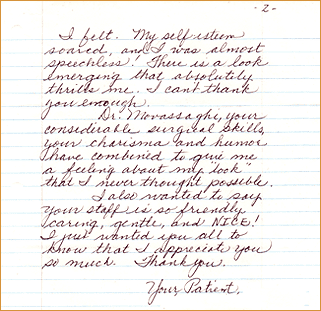 -2-
I felt. My self isteem
soared, and I was almost
speechless! There is a look
emerging that absolutely
thrills me. I can't thank
you enough.
Dr. Movassaghi, your
considerable surgical skills,
your charisma and humor
have combined to give me
a feeling about my "look"
that I never thought possible.
I also wanted to say
your staff is so friendly
caring, gentle, and NICE!
I just wanted you all to
know that I appreciate you
so much. Thank you.
Your Patient,